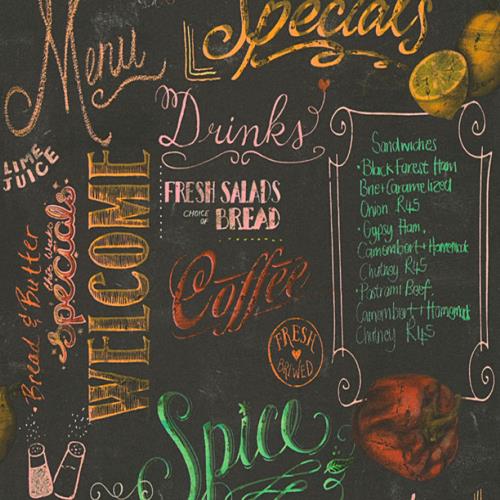 Menu
Specials
Drinks
LIME
JUICE
FRESH SALADS
CHOICE
OF
BREAD
WELCOME
Bread & Butter
this week's
Specials
Coffee
FRESH
BREWED
Spice
Sandwiches
• Black Forest Ham
Brie + Caramelized
Onion R45
• Gypsy Ham,
Camembert + Homemade
Chutney R45
• Pastrami Beef,
Camembert + Homemade
Chutney R45